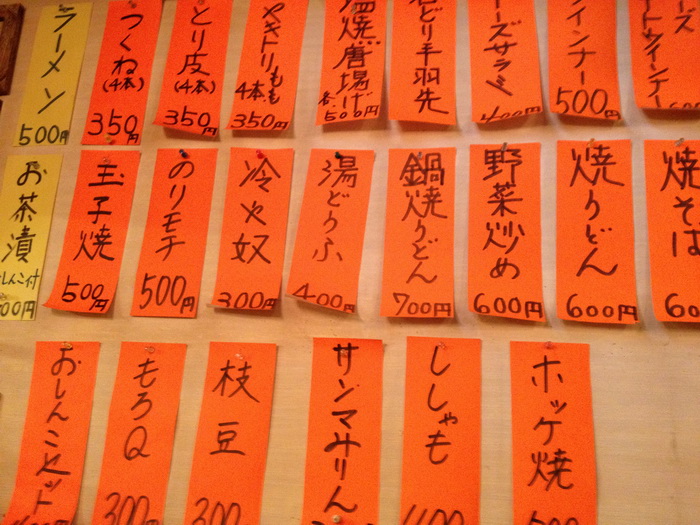 ラーメン
500円
つくね
(4本)
350円
とり皮
(4本)
350円
ヤキトリもも
4本
350円
塩焼唐揚げ
500円
若どり手羽先
ーズサラミ
400円
インナー
500円
ートウインナー
ーズ
お茶漬
しんこ付
00円
玉子焼
500円
のりモチ
500円
冷奴
300円
湯どうふ
400円
鍋焼うどん
700円
野菜炒め
600円
焼うどん
600円
焼そば
60
おしんこセット
もろQ
300円
枝豆
300
サンマみりん
ししゃも
400
ホッケ焼